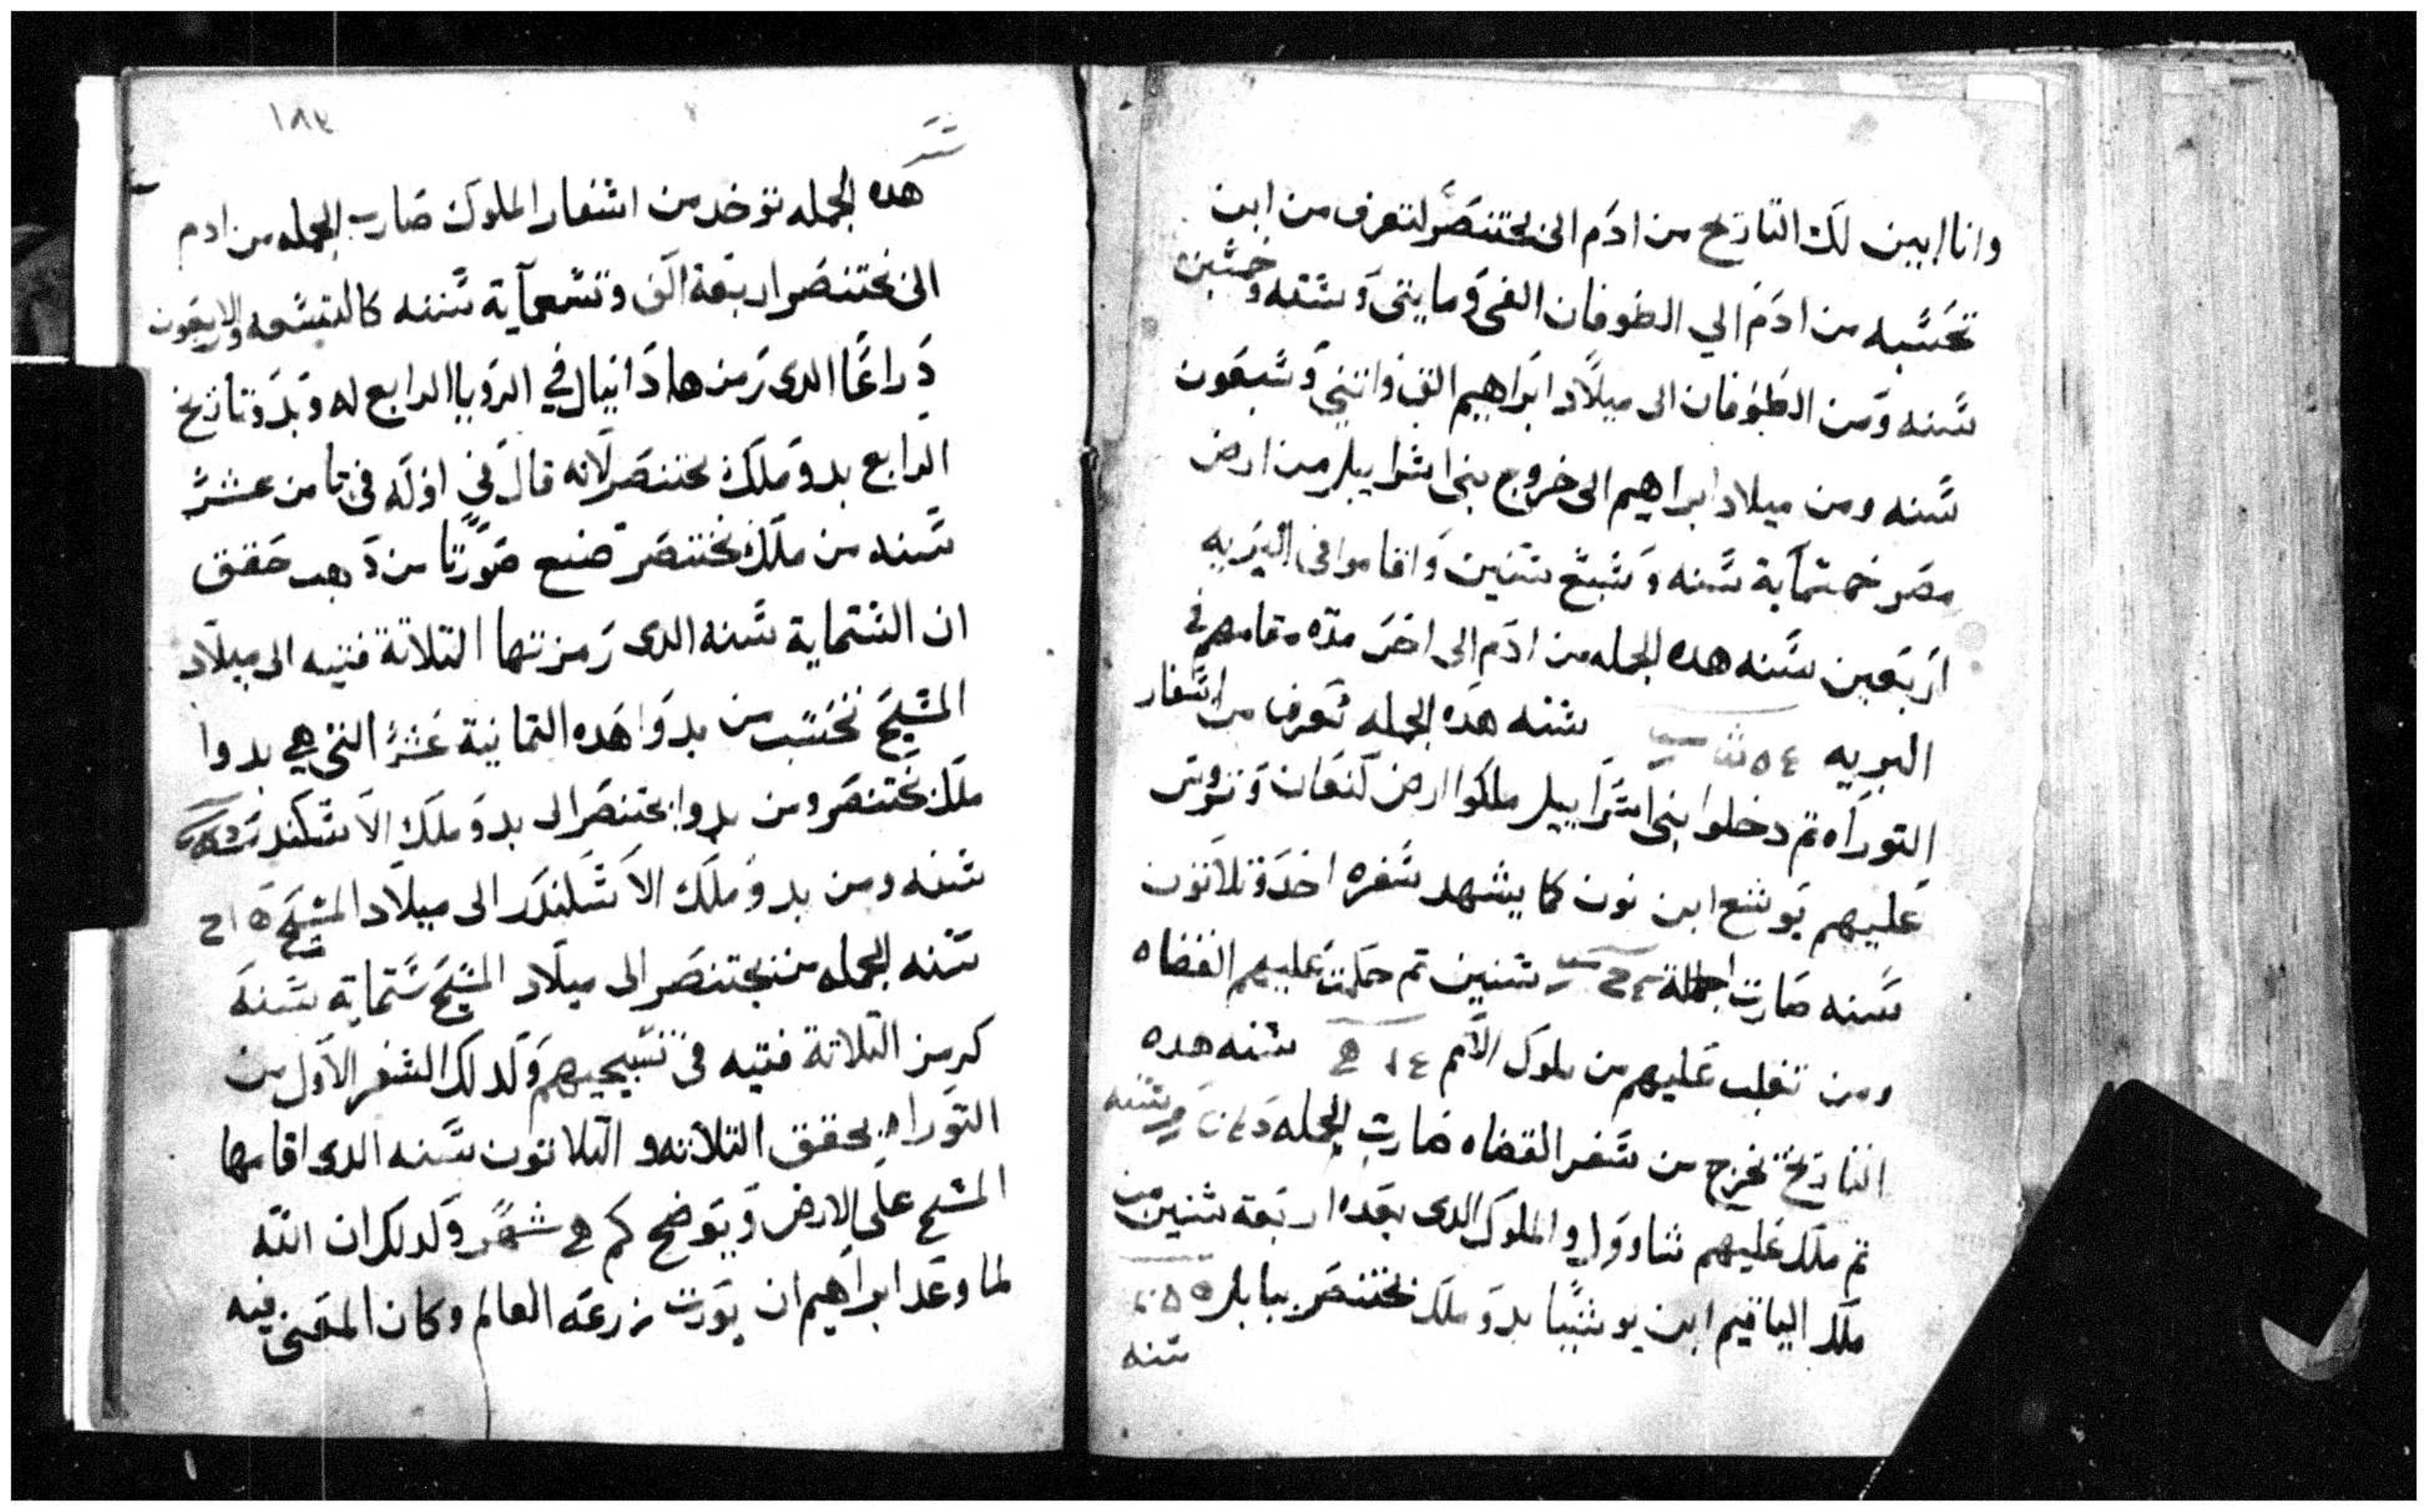 وانا ابين لك التاريخ من ادم الى بختنصر لتعرف من اين
تحسبه من ادم الي الطوفان الفى ومايتى وستة وخمسين
سنه ومن الطوفان الى ميلاد ابراهيم الف واتنى وسبعون
سنه ومن ميلاد ابراهيم الى خروج بنى اسراييل من ارض
مصر خمسماية سنه وسبع سنين واقاموا فى البريه
اربعين سنه هده الجمله من ادم الى اخر مدة مقامهم فى
البريه سنه هده الجمله تعرف من اسفار
التوراه تم دخلوا بنى اسراييل ملكوا ارض كنعان وتروس
عليهم يوشع ابن نون كما يشهد سفره احد وتلاتون
سنه صارت الجملة سنين تم حكمت عليهم القضاه
ومن تغلب عليهم من ملوك الامم سنه هده
التاريخ تخرج من سفر القضاه صارت الجمله سنه
تم ملك عليهم شاوول والملوك الدى بعده اربعة سنين من
ملك الياقيم ابن يوشيا بدو ملك بختنصر ببابل
سنه
١٨٣
هده الجمله توخد من اسفار الملوك صارت الجمله من ادم
الى بختنصر اربعة الف وتسعماية سنه كالتسعه والاربعون
دراعا الدى رمزها دانيال في الرويا الرابع له وبدو تاريخ
الرابع بدو ملك بختنصر لانه قال في اوله فى تامن عشر
سنه من ملك بختنصر صنع صورتا من دهب حقق
ان الستماية سنه الدى رمزتها التلاتة فتيه الى ميلاد
المسيح تحسب من بدوا هده التمانية عشر التى هي بدوا
ملك بختنصر ومن بدوا بختنصر الى بدو ملك الاسكندر
سنه ومن بدو ملك الاسكندر الى ميلاد المسيح
سنه الجمله من بختنصر الى ميلاد المسيح ستماية سنة
كرمز التلاتة فتيه فى تسبيحهم ولدلك السفر الاول من
التوراه يحقق التلاته والتلاتون سنه الدى اقامها
المسيح على الارض ويوضح كم هى شهر ولدلك ان الله
لما وعد ابراهيم ان يورت زرعه العالم وكان المعنى فيه